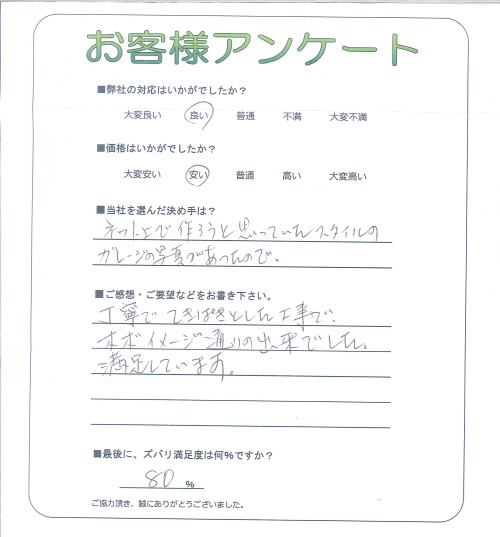 お客様アンケート
■弊社の対応はいかがでしたか？
大変良い 良い 普通 不満 大変不満
■価格はいかがでしたか？
大変安い 安い 普通 高い 大変高い
■当社を選んだ決め手は？
ネット上で作ろうと思っていたスタイルの
ガレージの写真があったので、
■ご感想・ご要望などをお書き下さい。
丁寧でてきぱきとした工事で、
ホボイメージ通りの出来でした。
満足しています。
■最後に、ズバリ満足度は何%ですか？
80 %
ご協力頂き、誠にありがとうございました。